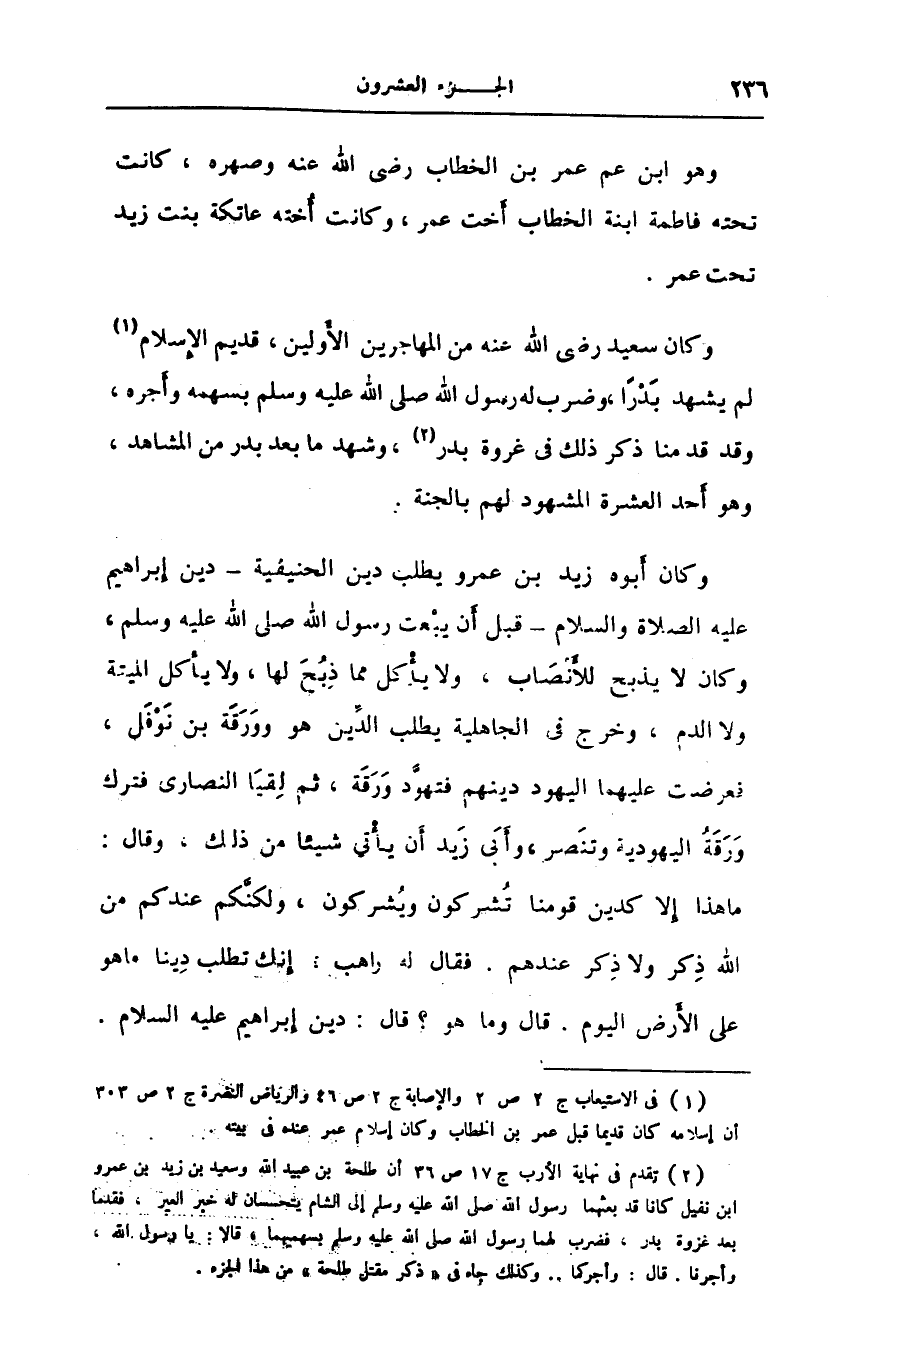 ٢٣٦ الجـــزء العشرون
وهو ابن عم عمر بن الخطاب رضى الله عنه وصهره ، كانت
تحته فاطمة ابنة الخطاب أَخت عمر ، وكانت أُخته عاتكة بنت زيد
تحت عمر .
وكان سعيد رضى الله عنه من المهاجرين الأَولين ، قديم الإِسلام(١)
لم يشهد بَدْرًا ، وضرب له رسول الله صلى الله عليه وسلم بسهمه وأَجره ،
وقد قدمنا ذكر ذلك فى غروة بدر(٢) ، وشهد ما بعد بدر من المشاهد ،
وهو أَحد العشرة المشهود لهم بالجنة .
وكان أَبوه زيد بن عمرو يطلب دين الحنيفية – دين إبراهيم
عليه الصلاة والسلام – قبل أَن يبْعث رسول الله صلى الله عليه وسلم ،
وكان لا يذبح للأَنْصَاب ، ولا يأْكل مما ذِبُحَ لها ، ولا يأْكل الميتة
ولا الدم ، وخرج فى الجاهلية يطلب الدِّين هو ووَرَقَة بن نَوْفَل ،
فعرضت عليهما اليهود دينهم فتهوَّد وَرَقَة ، ثم لِقيَا النصارى فترك
وَرَقَةُ اليهودية وتنَصر ، وأَبَى زَيد أَن يأْتي شيئا من ذلك ، وقال :
ماهذا إلا كدين قومنا تُشركون ويُشركون ، ولكنَّكم عندكم من
الله ذِكر ولا ذِكر عندهم . فقال له راهب : إنك تطلب دِينا ماهو
على الأَرض اليوم . قال وما هو ؟ قال : دين إبراهيم عليه السلام .
(١) فى الاستيعاب ج ٢ ص ٢ والإصابة ج ٢ ص ٤٦ والرياض النضرة ج ٢ ص ٣٠٣
أن إسلامه كان قديما قبل عمر بن الخطاب وكان إسلام عمر عنده فى بيته .
(٢) تقدم فى نهاية الأرب ج ١٧ ص ٣٦ أن طلحة بن عبيد الله وسعيد بن زيد بن عمرو
ابن نفيل كانا قد بعثهما رسول الله صلى الله عليه وسلم إلى الشام يتحسسان له خبر العير ، فقدما
بعد غزوة بدر ، فضرب لهما رسول الله صلى الله عليه وسلم بسهميهما ، قالا : يا رسول الله ،
وأجرنا . قال : وأجركما .. وكذلك جاء فى « ذكر مقتل طلحة » من هذا الجزء .